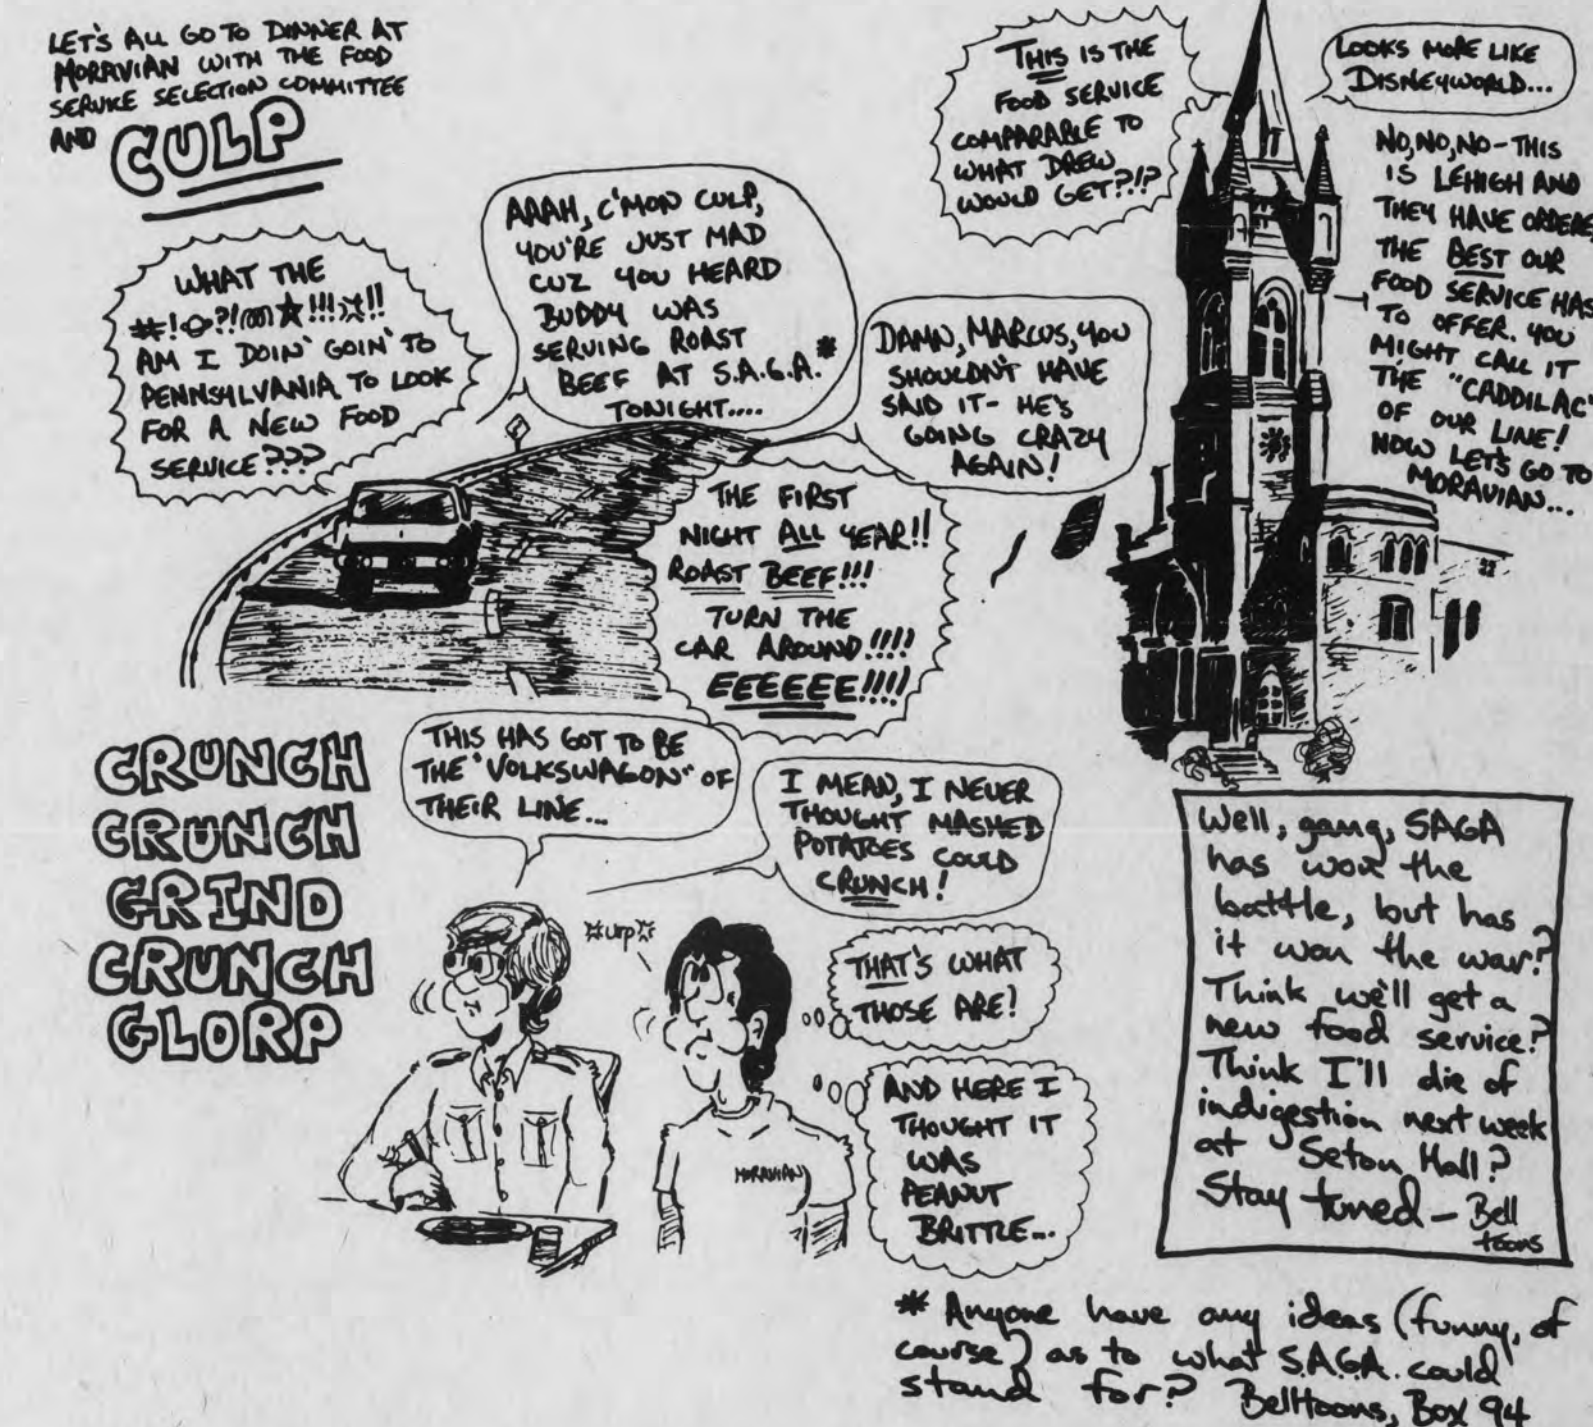 LET'S ALL GO TO DINNER AT
MORAVIAN WITH THE FOOD
SERVICE SELECTION COMMITTEE
AND CULP
WHAT THE
#!?!!!!!!
AM I DOIN' GOIN' TO
PENNSYLVANIA TO LOOK
FOR A NEW FOOD
SERVICE???
AAAH, C'MON CULP,
YOU'RE JUST MAD
CUZ YOU HEARD
BUDDY WAS
SERVING ROAST
BEEF AT S.A.G.A.*
TONIGHT....
DAMN, MARCUS, YOU
SHOULDN'T HAVE
SAID IT- HE'S
GOING CRAZY
AGAIN!
THE FIRST
NIGHT ALL YEAR!!
ROAST BEEF!!!
TURN THE
CAR AROUND!!!!
EEEEEE!!!!
THIS IS THE
FOOD SERVICE
COMPARABLE TO
WHAT DREW
WOULD GET?!?
LOOKS MORE LIKE
DISNEYWORLD...
NO, NO, NO - THIS
IS LEHIGH AND
THEY HAVE ORDERE
THE BEST OUR
FOOD SERVICE HAS
TO OFFER. YOU
MIGHT CALL IT
THE "CADDILAC"
OF OUR LINE!
NOW LET'S GO TO
MORAVIAN...
CRUNCH
CRUNCH
GRIND
CRUNCH
GLORP
THIS HAS GOT TO BE
THE "VOLKSWAGON" OF
THEIR LINE...
I MEAN, I NEVER
THOUGHT MASHED
POTATOES COULD
CRUNCH!
urp
THAT'S WHAT
THOSE ARE?
AND HERE I
THOUGHT IT
WAS
PEANUT
BRITTLE...
MORAVIAN
Well, gang, SAGA
has won the
battle, but has
it won the war?
Think we'll get a
new food service?
Think I'll die of
indigestion next week
at Seton Hall?
Stay tuned - Bell
toons
* Anyone have any ideas (funny, of
course) as to what S.A.G.A. could
stand for? Belltoons, Box 94